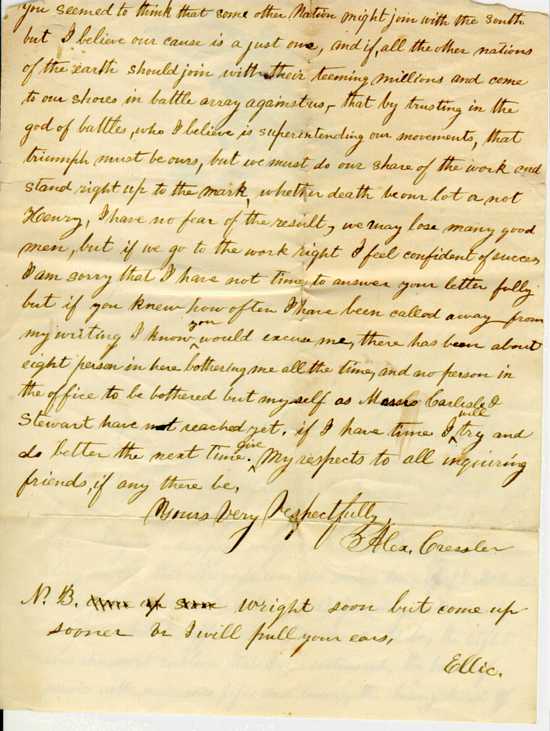 you seemed to think that some other Nation might join with the south
but I believe our cause is a just one, and if, all the other nations
of the earth should join with their teeming millions and come
to our shores in battle array against us, that by trusting in the
god of battles, who I believe is superintending our movements, that
triumph must be ours, but we must do our share of the work and
stand right up to the mark, whether death be our lot or not
Henry, I have no fear of the result, we may lose many good
men, but if we go to the work right I feel confident of succes
I am sorry that I have not time to answer your letter fully
but if you knew how often I have been called away from
my writing I know you would excuse me, there has been about
eight person in here bothering me all the time, and no person in
the office to be bothered but my self as Messrs Carlisle &
Stewart have not reached yet. if I have time I will try and
do better the next time. give My respects to all inquiring
friends, if any there be,
Yours Very Respectfully,
Alex. Cressler
N. B. wright soon but come up
sooner or I will pull your ears,
Ellic.